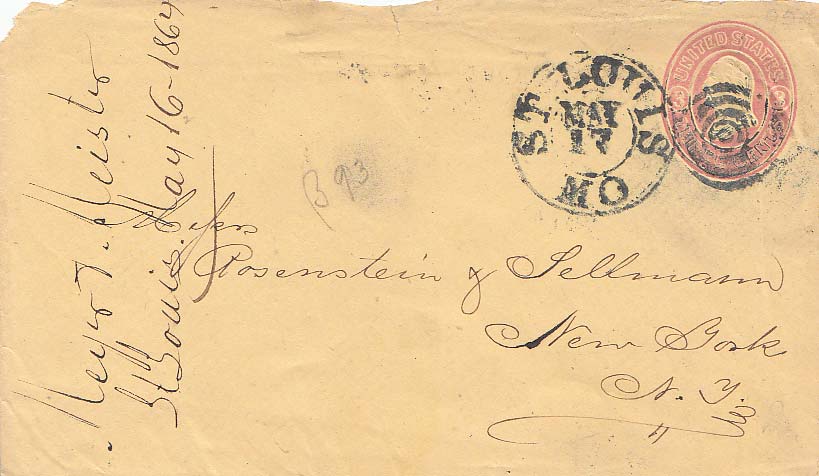 UNITED STATES
3 3
ST. LOUIS
MAY
17
MO
B 93
Messrs
Rosenstein & Sellmann
New York
N. Y.
Meyer & Meister
St Louis May 16-1864